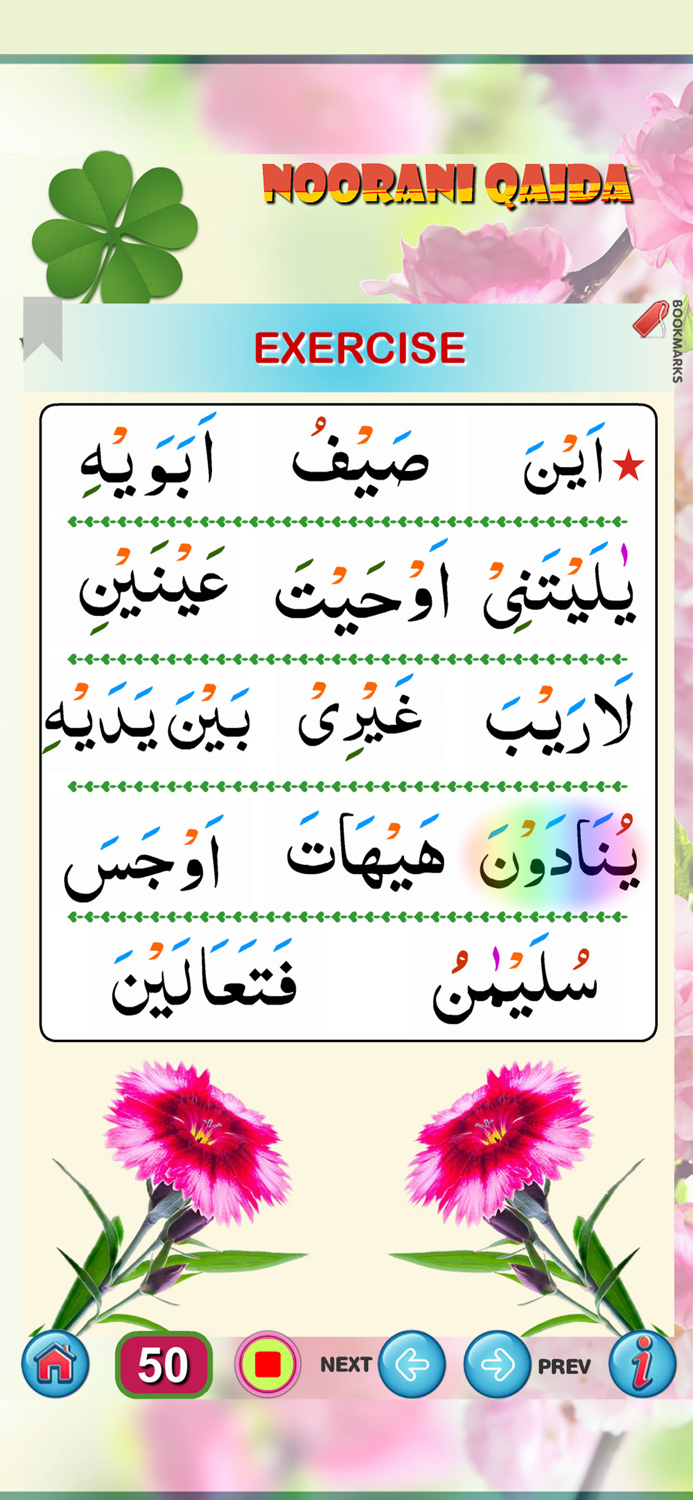 NOORANI QAIDA
BOOKMARKS
EXERCISE
اَيْنَ صَيْفُ اَبَوَيْهِ
يٰلَيْتَنِيْ اَوْحَيْتَ عَيْنَيْنِ
لَارَيْبَ غَيْرِیْ بَيْنَ يَدَيْهِ
يُنَادَوْنَ هَيْهَاتَ اَوْجَسَ
سُلَيْمٰنُ فَتَعَالَيْنَ
50 NEXT PREV i